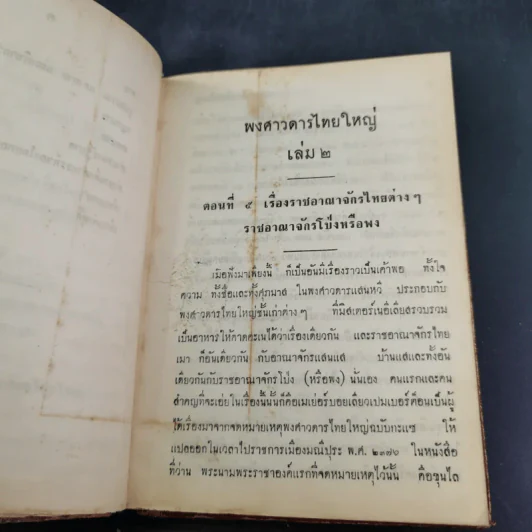 พงศาวดารไทยใหญ่
เล่ม ๒
ตอนที่ ๕ เรื่องราชอาณาจักรไทยต่าง ๆ
ราชอาณาจักรโป่งหรือพง
เมื่อพึงมาเพียงนี้ ก็เป็นอันมีเรื่องราวเป็นเค้าพอ ทั้งใจ
ความ ทั้งชื่อและทั้งศุภมาส ในพงศาวดารแสนหวี ประกอบกับ
พงศาวดารไทยใหญ่ชั้นเก่าต่าง ๆ ที่มิสเตอร์เนอีเลียสรวบรวม
เป็นอาหารให้คาดคะเนได้ว่าเรื่องเดียวกัน และราชอาณาจักรไทย
เมา ก็อันเดียวกัน กับอาณาจักรแสนแส บ้านแสและทั้งอัน
เดียวกันกับราชอาณาจักรโป่ง (หรือพง) นั้นเอง คนแรกและคน
สำคัญที่จะเอ่ยในเรื่องนั้นนั้นก็คือเมเย่อร์บอยเลียวเปมเบอร์ต็อนเป็นผู้
ได้เรื่องมาจากจดหมายเหตุพงศาวดารไทยใหญ่ฉบับกะแซ ให้
แปลออกในเวลาไปราชการเมืองมณีปุระ พ.ศ. ๒๓๗๖ ในหนังสือ
ที่ว่าน พระนามพระราชาองค์แรกที่จดหมายเหตุไว้นั้น คือขุนไล